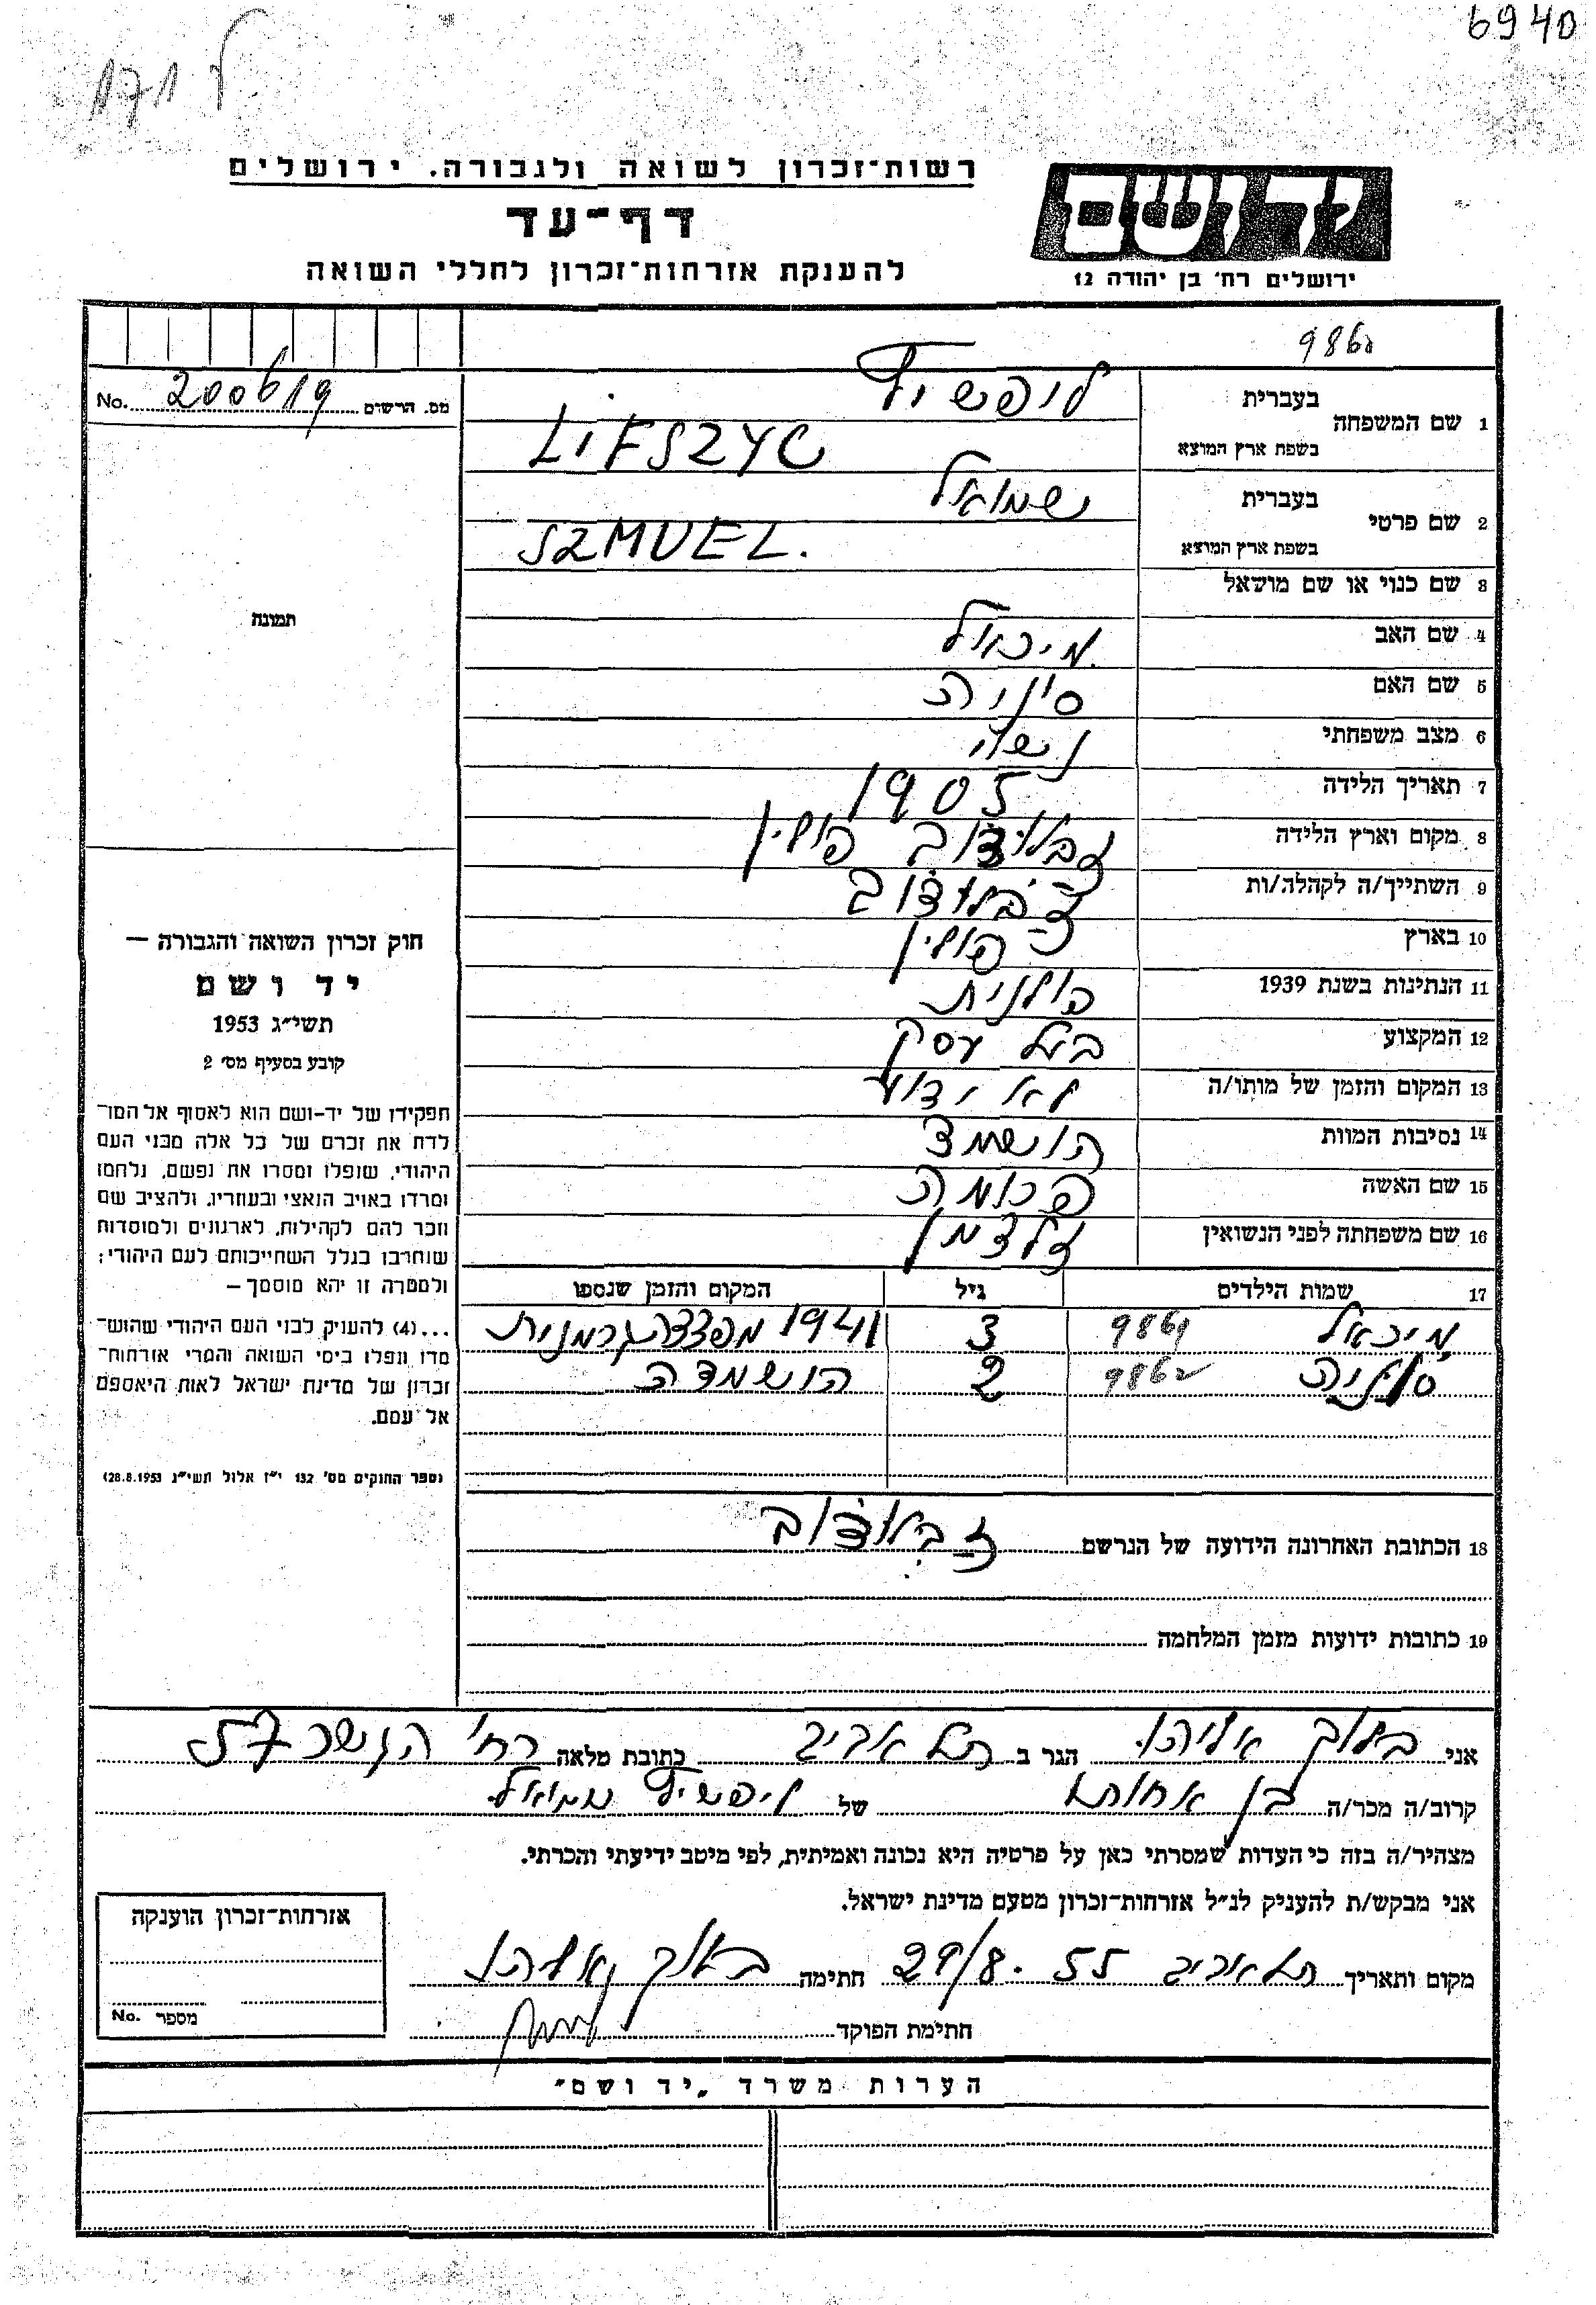 694D
171 ל
רשות־זכרון לשואה ולגבורה. ירושלים
דף־עד
להענקת אזרחות־זכרון לחללי השואה
יד ושם
ירושלים רח' בן יהודה 12
מס. הרשום 200619 No.
תמונה
חוק זכרון השואה והגבורה —
יד ושם
תשי״ג 1953
קובע בסעיף מס' 2
תפקידו של יד-ושם הוא לאסוף אל המו־
לדת את זכרם של כל אלה מבני העם
היהודי, שנפלו ומסרו את נפשם, נלחמו
ומרדו באויב הנאצי ובעוזריו, ולהציב שם
וזכר להם לקהילות, לארגונים ולמוסדות
שנחרבו בגלל השתייכותם לעם היהודי;
ולמטרה זו יהא מוסמך —
...(4) להעניק לבני העם היהודי שהוש־
מדו ונפלו בימי השואה והמרי אזרחות־
זכרון של מדינת ישראל לאות היאספם
אל עמם.
(ספר החוקים מס' 132 י״ז אלול תשי״ג 28.8.1953)
1 שם המשפחה
בעברית ליפשיץ
בשפת ארץ המוצא LIFSZYC
2 שם פרטי
בעברית שמואל
בשפת ארץ המוצא SZMUEL.
3 שם כנוי או שם מושאל
4 שם האב מיכאל
5 שם האם
6 מצב משפחתי נשוי
7 תאריך הלידה 1905
8 מקום וארץ הלידה זבלודוב פולין
9 השתייך/ה לקהלה/ות זבלודוב
10 בארץ פולין
11 הנתינות בשנת 1939 פולנית
12 המקצוע בעל עסק
13 המקום והזמן של מותו/ה לא ידוע
14 נסיבות המוות הושמד
15 שם האשה
16 שם משפחתה לפני הנשואין
17 שמות הילדים גיל המקום והזמן שנספו
מיכאל 3 1941 מפצצה גרמנית
9862 2 הושמדה
18 הכתובת האחרונה הידועה של הנרשם זבלודוב
19 כתובות ידועות מזמן המלחמה
אני בלוך אליהו הגר ב תל אביב כתובת מלאה רח' הנשר 57
קרוב/ה מכר/ה בן אחותו של ליפשיץ שמואל
מצהיר/ה בזה כי העדות שמסרתי כאן על פרטיה היא נכונה ואמיתית, לפי מיטב ידיעתי והכרתי.
אני מבקש/ת להעניק לנ״ל אזרחות־זכרון מטעם מדינת ישראל.
מקום ותאריך תל אביב 29/8.55 חתימה בלוך אליהו
חתימת הפוקד
אזרחות־זכרון הוענקה
מספר No.
הערות משרד „יד ושם״